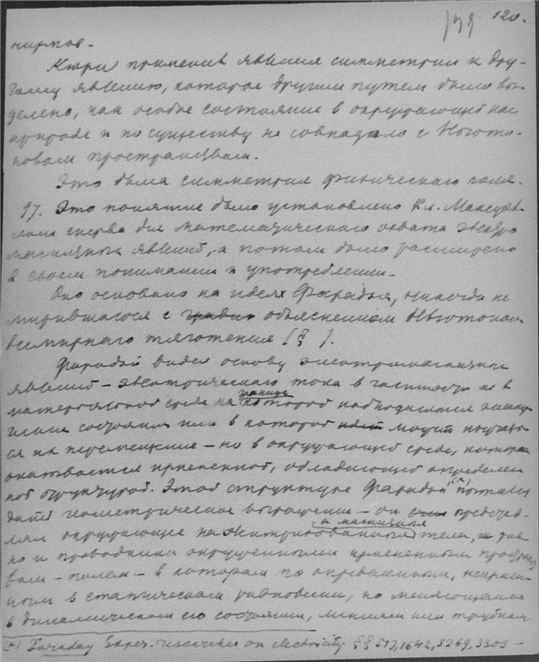 120.
нирмов.
Кюри применив явления симметрии к дру-
гому явлению, которое другим путем было вы-
делено, как особое состояние в окружающей нас
природе и по существу не совпадало с Ньюто-
новым пространством.
Это была симметрия физического поля.
97. Это понятие было установлено Кл. Максуэл-
лом сперва для математического охвата электро
магнитных явлений, а потом было расширено
в своем понимании и употреблении.
Оно основано на идеях Фарадея, никогда не
мирившагося с объяснением Ньютоном
всемирного тяготения [§ ].
Фарадей видел основу электромагнитных
явлений – электрического тока в частности не в
материальной среде на границе которой наблюдается
состояния или в которой могут
ся их перемещение – но в окружающей среде, которая
охватывается , обладающего определен
ной структурой. Этой структуре Фарадей (*) пытался
дать геометрическое выражение – он представ
лял окружающее наэлектризованные и магнитные тела,
но и проводники окруженными пространст
вом – полем – в котором по определенным,
ном в статическом равновесии, но меняющимся
в динамическом его состоянии, линиям или трубкам
(*) Faraday Exper. researches on electricity §§ 517, 1642, 3269, 3303 –